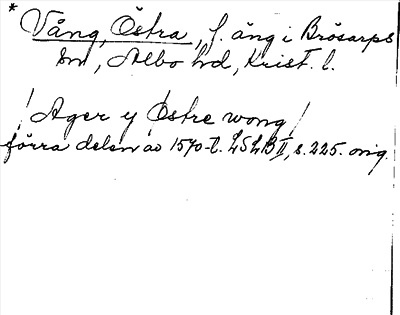 * Vång, Östra, f. äng i Brösarps
sn, Albo hd, Krist. l.
/ Ager y Østre wong /
förra delen av 1570-t. LSLB II, s. 225. orig.